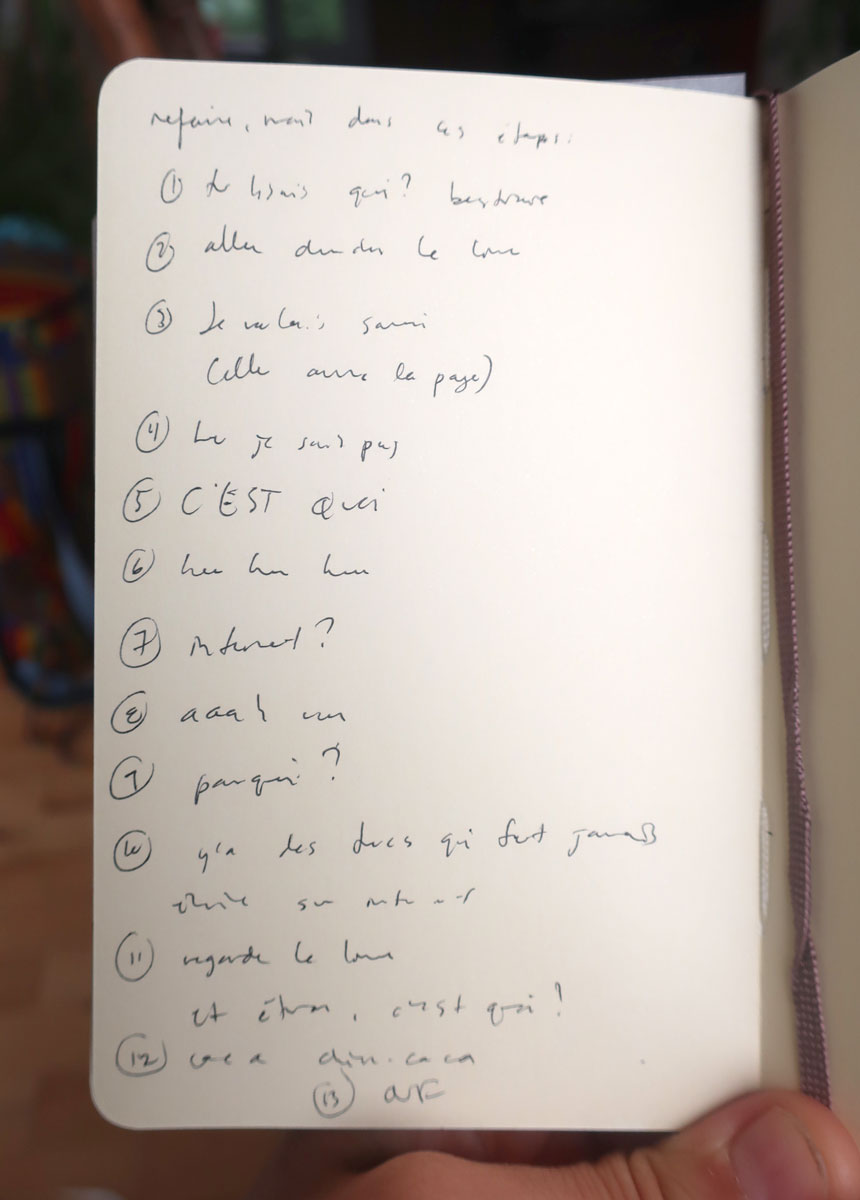 refaire, mais dans ces étapes:
① tu lisais quoi?
② aller chercher le livre
③ Je voulais savoir
(elle ouvre la page)
④ là je sais pas
⑤ C'EST Quoi
⑥ heu heu heu
⑦ internet?
⑧ aaah
⑨ parquoi?
⑩ y'a des trucs qui faut jamais
écrire sur internet
⑪ regarde le livre
et étron, c'est quoi!
⑫ caca
⑬